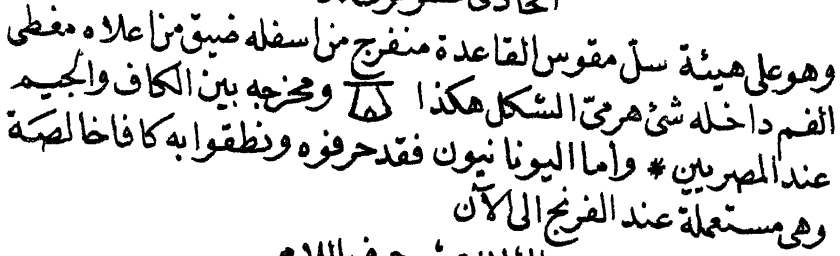 وهو على هيئة سلّ مقوس القاعدة منفرج من اسفله ضيق من اعلاه مغطى
الفم داخله شئ هرمىّ الشكل هكذا ومخرجه بين الكاف والجيم
عند المصريين * وأما اليونانيون فقد حرفوه ونطقوا به كافا خالصة
وهى مستعملة عند الفرنج الى الآن